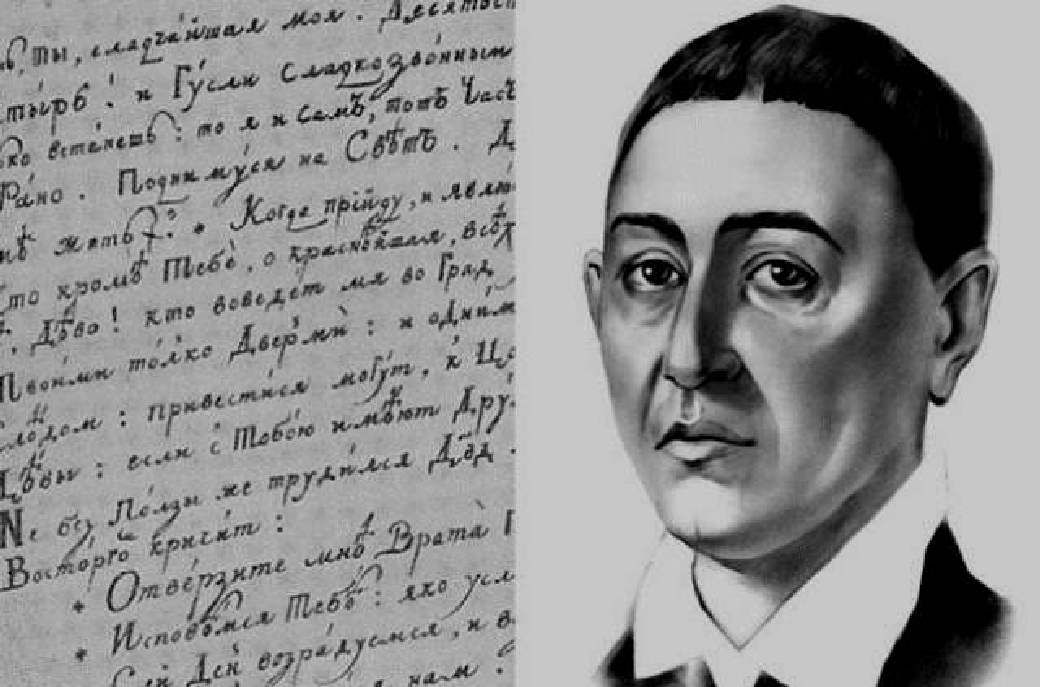 ты, сладчайшая моя . Десятост
тырѣ ! и Гусли Сладкозвонныи
встанешь : то я и Самъ, тотъ Часъ
Рано . Подниму́ся на Свѣтъ .
жить ? : * Когда прійду, и явлю
кто кромѣ Тебѐ, о краснѣйшая,
Дѣво ! кто воведет мя во Град
Твои́ми то́лко Двер́ми : и одним
Слѣдом : привести́ся могу́т, к Ца
: если с Тобо́ю имѣ́ют Дру
Не без По́лзы же труди́лся Дв҃д .
Востор́го кричи́т :
* Отве́рзите мнѣ̀ Врата̀ П
* Исповѣ́мся Тебѣ̀ : яко усл
Сей Ден возра́дуемся, и в
нам ?